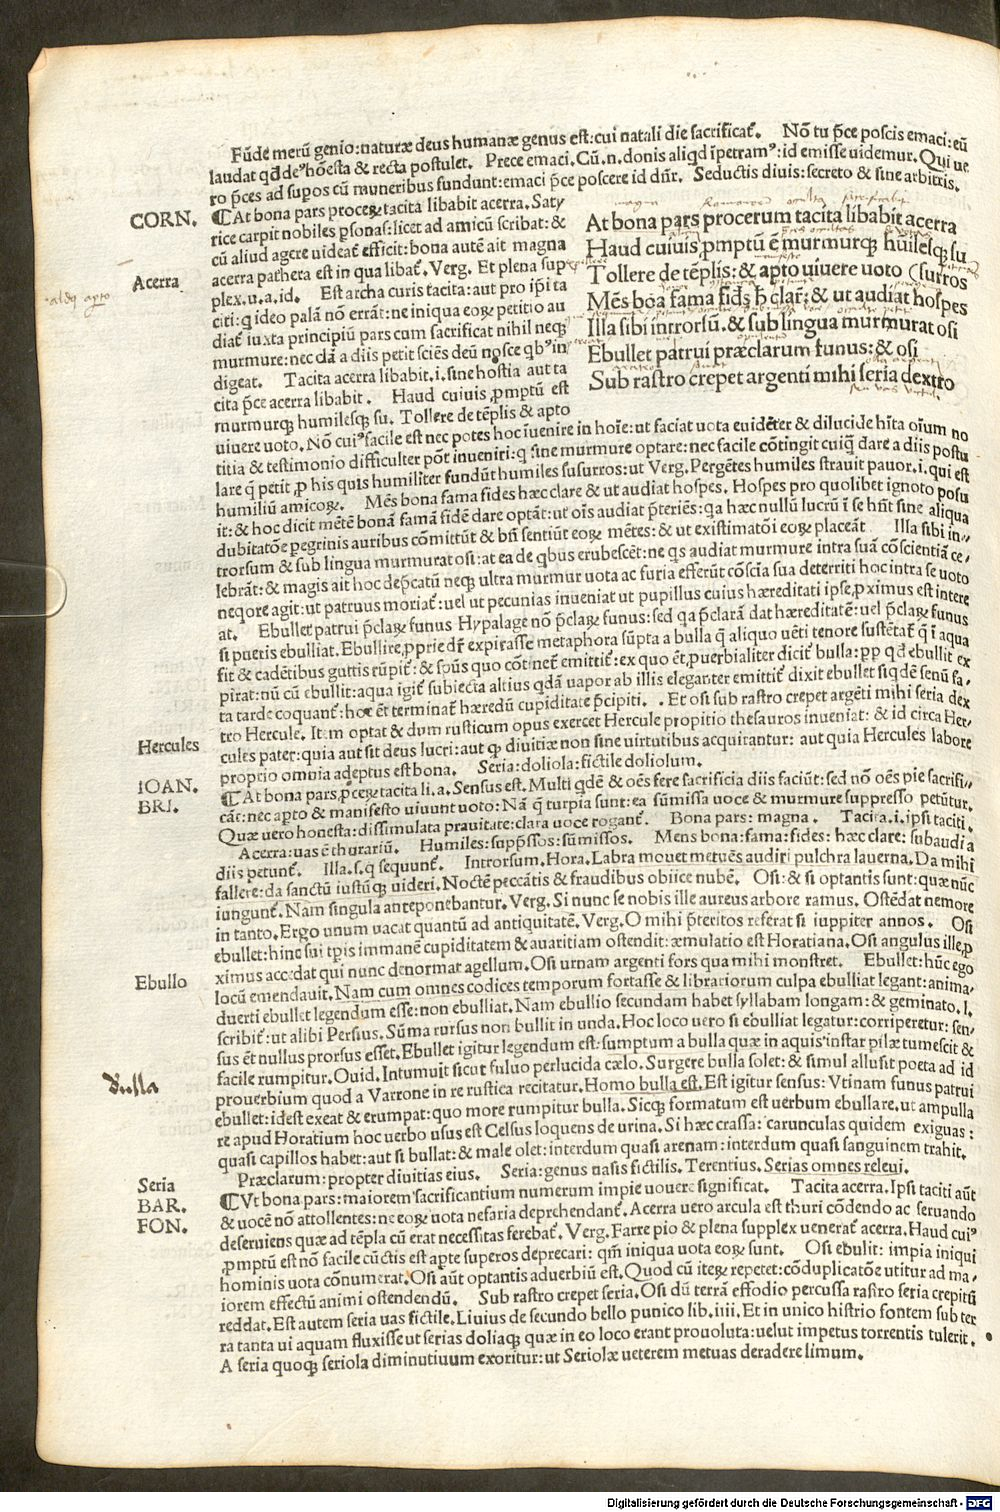 Fūde merū genio:naturæ deus humanæ genus est:cui natali die sacrificat̄. Nō tu p̄ce poscis emaci:eū
laudat qd de hōesta & recta postulet. Prece emaci.Cū.n.donis aliqd īpetramꝰ:id emisse uidemur.Qui ue
ro p̄ces ad supos cū muneribus fundunt:emaci p̄ce poscere id dn̄r. Seductis diuis:secreto & sine arbitris.
CORN. ¶At bona pars proceꝝ tacita libabit acerra.Saty
rice carpit nobiles ꝑsonas:licet ad amicū scribat:&
cū aliud agere uideat̄ efficit:bona autē ait magna
Acerra acerra pathera est in qua libat̄.Verg.Et plena sup
plex.u.a.id. Est archa curis tacita:aut pro ip̄i ta
citi:q ideo palā nō errāt:ne iniqua eoꝝ petitio au
diat̄ iuxta principiū pars cum sacrificat nihil neqꝫ
murmure:nec dā a diis petit sciēs deū nosce qbꝰ in
digeat. Tacita acerra libabit.i.sine hostia aut ta
cita p̄ce acerra libabit. Haud cuiuis ꝓmptū est
murmurqꝫ humilesqꝫ su. Tollere de tēplis & apto
At bona pars procerum tacita libabit acerra
Haud cuiuis ꝓmptū ē murmurqꝫ hūilesqꝫ su
Tollere de tēplis:& apto uiuere uoto (surros
Mēs boa fama fids h̄ clar̄:& ut audiat hospes
Illa sibi introrsū.& sub lingua murmurat osi
Ebullet patrui præclarum funus:& osi
Sub rastro crepet argenti mihi seria dextro
uiuere uoto.Nō cuiꝰ facile est nec potes hoc īuenire in hoīe:ut faciat uota euidēter & dilucide hīta oīum no
titia & testimonio difficulter pōt inueniri:q sine murmure optare:nec facile cōtingit cuiq̄ dare a diis postu
lare q̄ petit ꝓ his quis humiliter fundūt humiles susurros:ut Verg.Pergētes humiles strauit pauor.i.qui est
humiliū amicoꝝ. Mēs bona fama fides hæc clare & ut audiat hospes.Hospes pro quolibet ignoto posu
it:& hoc dicit mētē bonā famā fidē dare optāt:ut oīs audiat p̄teriēs:qa hæc nullū lucrū ī se hn̄t sine aliqua
dubitatōe pegrinis auribus cōmittūt & bn̄ sentiūt eoꝝ mētes:& ut existimatōi eoꝝ placeāt. Illa sibi in,,
trorsum & sub lingua murmurat osi:at ea de qbus erubescēt:ne qs audiat murmure intra suā cōscientiā ce,
lebrāt:& magis ait hoc dep̄catū neqꝫ ultra murmur uota ac furia efferūt cōscīa sua deterriti hoc intra se uoto
neqore agit:ut patruus moriat̄:uel ut pecunias inueniat ut pupillus cuius hæreditati ipse ꝓximus est intere
at. Ebullet patrui p̄claꝝ funus Hypalage nō p̄claꝝ funus:sed qa p̄clarā dat hæreditatē:uel p̄claꝝ funus
si pueris ebulliat.Ebullire ꝓprie dr̄ expirasse metaphora sūpta a bulla q̄ aliquo uēti tenore sustētat̄ q̄ ī aqua
fit & cadētibus guttis rūpit̄:& sp̄us quo cōtinet̄ emittit̄:ex quo ēt ꝓuerbialiter dicit̄ bulla:pp qd ebullit ex
pirat:nū cū ebullit:aqua igit̄ subiecta altius qdā uapor ab illis eleganter emittit̄ dixit ebullet siqdē senū fa,
ta tarde coquant̄:hoc ēt terminat̄ hæredū cupiditate p̄cipiti. .Et osi sub rastro crepet argēti mihi seria dex
tro Hercule. Item optat & dum rusticum opus exercet Hercule propitio thesauros inueniat: & id circa Her,
Hercules cules pater:quia aut sit deus lucri:aut qꝫ diuitiæ non sine uirtutibus acquirantur: aut quia Hercules labore
proprio omnia adeptus est bona. Seria:doliola:fictile doliolum.
IOAN.
BRI. ¶At bona pars ꝓceꝝ tacita li.a.Sensus est.Multi qdē & oēs fere sacrificia diis faciūt:sed nō oēs pie sacrifi,,
cāt:nec apto & manifesto uiuunt uoto:Nā q̄ turpia sunt:ea sūmissa uoce & murmure suppresso petūtur.
Quæ uero honesta:dissimulata prauitate:clara uoce rogant̄. Bona pars: magna. Tacita.i.ipsi taciti.
Acerra:uas ē thurariū. Humiles:supp̄ssos:sūmissos. Mens bona:fama:fides: hæc clare: subaudi a
diis petunt̄. Illa.s.q sequunt̄. Introrsum.Hora.Labra mouet metuēs audiri pulchra lauerna.Da mihi
fallere:da sanctū iustūqꝫ uideri.Noctē peccātis & fraudibus obiice nubē. Osi:& si optantis sunt:quæ nūc
iungunt̄.Nam singula anteponebantur.Verg.Si nunc se nobis ille aureus arbore ramus.Ostēdat nemore
in tanto.Ergo unum uacat quantū ad antiquitatē.Verg.O mihi p̄teritos referat si iuppiter annos. Osi
ebullet:hinc sui tp̄is immanē cupiditatem & auaritiam ostendit:æmulatio est Horatiana.Osi angulus ille ꝓ
ximus accedat qui nunc denormat agellum.Osi urnam argenti fors qua mihi monstret. Ebullet:hūc ego
Ebullo locū emendauit.Nam cum omnes codices temporum fortasse & librariorum culpa ebulliat legant:anima,
duerti ebullet legendum esse:non ebulliat.Nam ebullio secundam habet syllabam longam:& geminato.l.
scribit̄:ut alibi Persius.Sūma rursus non bullit in unda.Hoc loco uero si ebulliat legatur:corriperetur:sen,
sus ēt nullus prorsus esset.Ebullet igitur legendum est:sumptum a bulla quæ in aquis instar pilæ tumescit &
facile rumpitur.Ouid.Intumuit sicut fuluo perlucida cælo.Surgere bulla solet:& simul allusit poeta ad id
Bulla prouerbium quod a Varrone in re rustica recitatur.Homo bulla est.Est igitur sensus:Vtinam funus patrui
ebullet:idest exeat & erumpat:quo more rumpitur bulla.Sicqꝫ formatum est uerbum ebullare.ut ampulla
re apud Horatium hoc uerbo usus est Celsus loquens de urina.Si hæc crassa: carunculas quidem exiguas:
quasi capillos habet:aut si bullat:& male olet:interdum quasi arenam:interdum quasi sanguinem trahit.
Præclarum:propter diuitias eius. Seria:genus nasis fictilis.Terentius.Serias omnes releui.
Seria
BAR.
FON. ¶Vt bona pars:maiorem sacrificantium numerum impie uouere significat. Tacita acerra.Ipsi taciti aūt
& uocē nō attollentes:ne eoꝝ uota nefaria deprehendant̄.Acerra uero arcula est thuri cōdendo ac seruando
deseruiens quæ ad tēpla cū erat necessitas ferebat̄.Verg.Farre pio & plena supplex uenerat̄ acerra.Haud cuiꝰ
ꝓmptū est nō facile cūctis est apte superos deprecari: qm̄ iniqua uota eoꝝ sunt. Osi ebulit: impia iniqui
hominis uota cōnumerat.Osi aūt optantis aduerbiū est.Quod cū iteꝝ repetet:cōduplicatōe utitur ad ma,
iorem effectū animi ostendendū. Sub rastro crepet seria.Osi dū terrā effodio percussa rastro seria crepitū
reddat.Est autem seria uas fictile.Liuius de secundo bello punico lib.iiii.Et in unico histrio fontem sub ter
ra tanta ui aquam fluxisse ut serias doliaqꝫ quæ in eo loco erant prouoluta:uelut impetus torrentis tulerit.
A seria quoqꝫ seriola diminutiuum exoritur:ut Seriolæ ueterem metuas deradere limum.
Digitalisierung gefördert durch die Deutsche Forschungsgemeinschaft - DFG